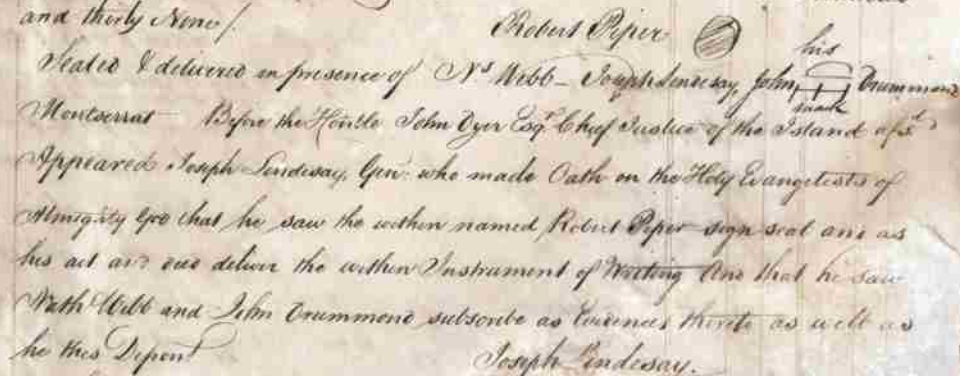 and thirty Nine/.
Robert Piper
his
Sealed & delivered in presence of Ns Webb - Joseph Lindesay John Drummond
mark
Montserrat Before the Honble John Dyer Esqr Chief Justice of the Island afsd
Appeared Joseph Lindesay Gen: who made Oath on the Holy Evangelists of
Almighty God that he saw the within named Robert Piper sign seal and as
his act and deed deliver the within Instrument of Writing And that he saw
Nath Webb and John Drummond subscribe as Evidences thereto as well as
he this Depont
Joseph Lindesay.